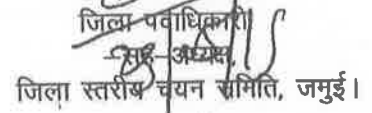 जिला पदाधिकारी
-सह-अध्यक्ष,
जिला स्तरीय चयन समिति, जमुई।